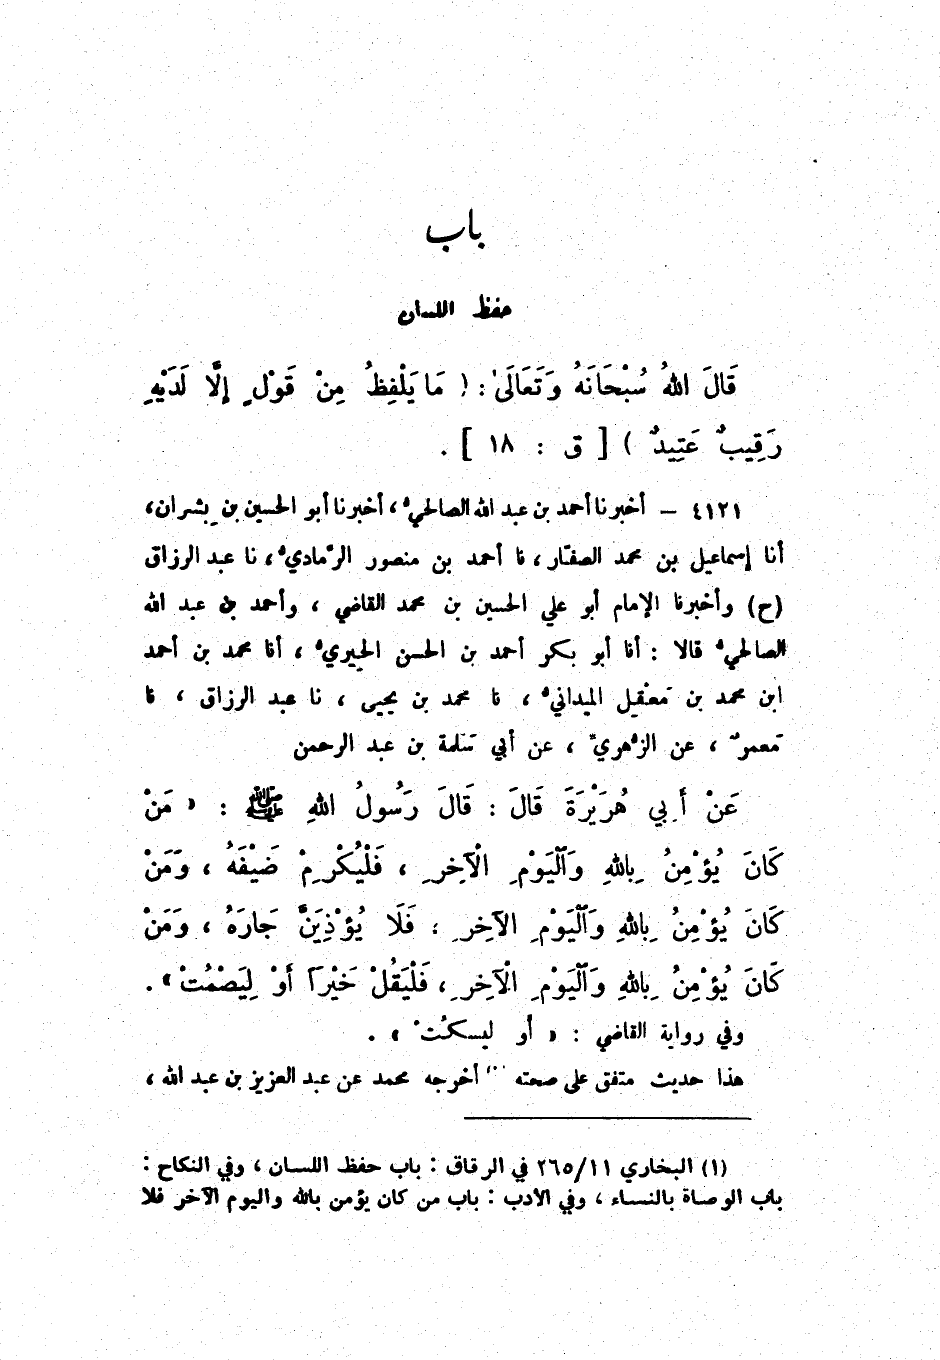 باب
حفظ اللسان
قَالَ اللهُ سُبْحَانَهُ وَتَعَالَىٰ : ( مَا يَلْفِظُ مِنْ قَوْلٍ إِلَّا لَدَيْهِ
رَقِيبٌ عَتِيدٌ ) [ ق : ١٨ ] .
٤١٢١ – أخبرنا أحمد بن عبد الله الصالحيُّ ، أخبرنا أبو الحسين بن بِشران،
أنا إسماعيل بن محمد الصفّار ، نا أحمد بن منصور الرَّماديُّ ، نا عبد الرزاق
(ح) وأخبرنا الإمام أبو علي الحسين بن محمد القاضي ، وأحمد بن عبد الله
الصالحيُّ قالا : أنا أبو بكر أحمد بن الحسن الحِيريُّ ، أنا محمد بن أحمد
ابن محمد بن مَعْقِل الميدانيُّ ، نا محمد بن يحيى ، نا عبد الرزاق ، نا
مَعمرٌ ، عن الزُّهويِّ ، عن أبي سَلمة بن عبد الرحمن
عَنْ أَبِي هُرَيْرَةَ قَالَ : قَالَ رَسُولُ اللهِ ﷺ : « مَنْ
كَانَ يُؤْمِنُ بِاللهِ وَٱلْيَوْمِ الْآخِرِ ، فَلْيُكْرِمْ ضَيْفَهُ ، وَمَنْ
كَانَ يُؤْمِنُ بِاللهِ وَٱلْيَوْمِ الآخِرِ ، فَلَا يُؤْذِيَنَّ جَارَهُ ، وَمَنْ
كَانَ يُؤْمِنُ بِاللهِ وَٱلْيَوْمِ الْآخِرِ ، فَلْيَقُلْ خَيْراً أَوْ لِيَصْمُتْ » .
وفي رواية القاضي : « أو ليسكُتْ » .
هذا حديث متفق على صحته (١) أخرجه محمد عن عبد العزيز بن عبد الله ،
(١) البخاري ٢٦٥/١١ في الرقاق : باب حفظ اللسان ، وفي النكاح :
باب الوصاة بالنساء ، وفي الأدب : باب من كان يؤمن بالله واليوم الآخر فلا